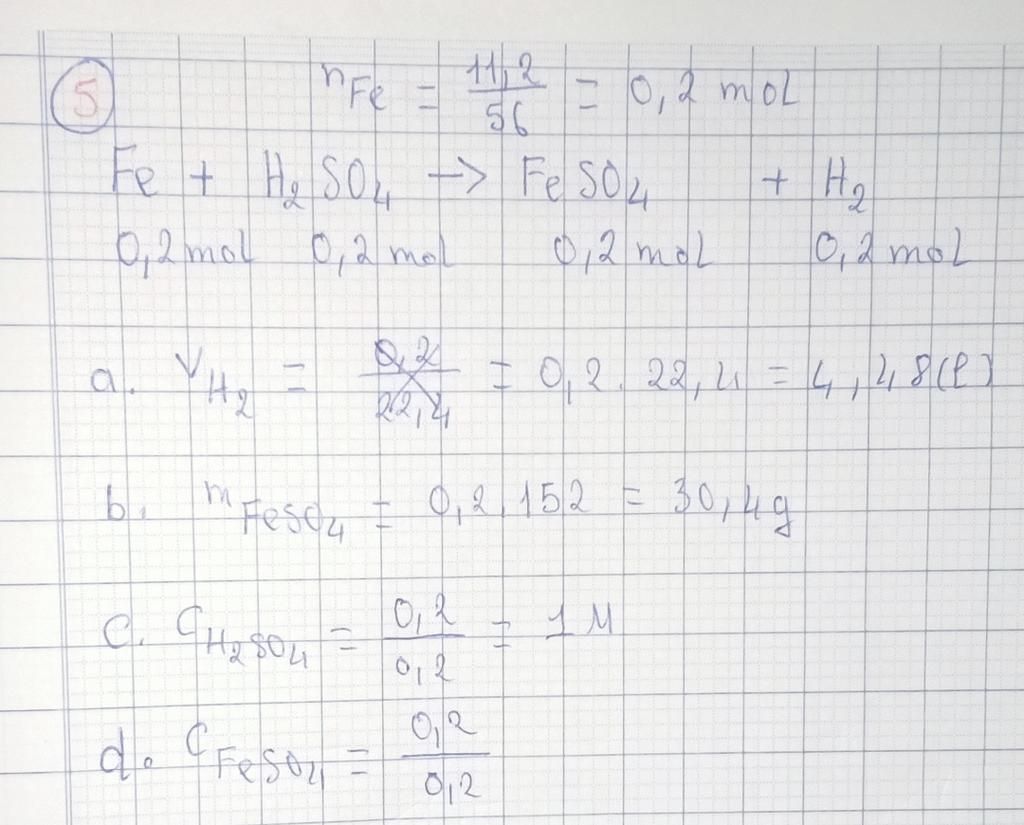 5 nFe = 11,2/56 = 0,2 mol
Fe + H2SO4 -> FeSO4 + H2
0,2 mol 0,2 mol 0,2 mol 0,2 mol
a. VH2 = 0,2/22,4 = 0,2. 22,4 = 4,48(l)
b. mFeSO4 = 0,2.152 = 30,4g
c. CH2SO4 = 0,2/0,2 = 1M
d. CFeSO4 = 0,2/0,2